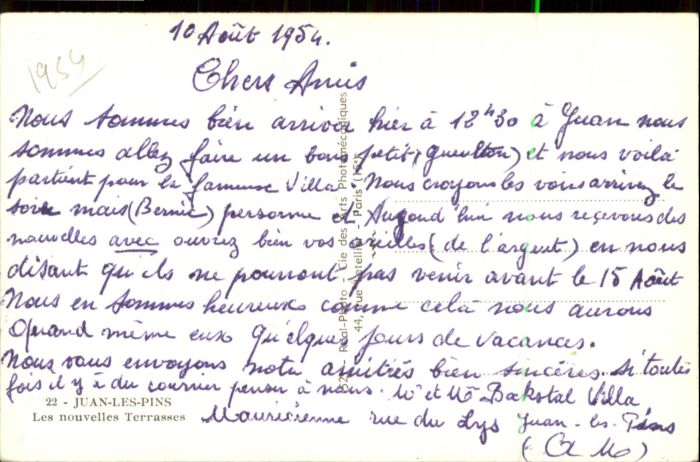 10 Août 1954.
1954
Chers Amis
Nous sommes bien arrivés hier à 12h30 à Juan nous
sommes allez faire un bon petit (gueulton) et nous voilà
partient pour la fameuse Villa. Nous croyons les voirs arrivez le
soir mais (Bernic) personne et Aujoud hui nous reçevons des
nouvelles avec ouvrez bien vos oreilles (de l'argent) en nous
disant qu'ils ne pourront pas venir avant le 15 Août
Nous en sommes heureux comme celà nous aurons
Quand même eux quelques jours de vacances.
Nous vous envoyons notre amitiés bien sincères. Si toutes
fois il y à du courrier penser à nous. Mr et Me Bakstal Villa
Mauricienne rue du Lys Juan-les-Pins
(A M)
22 - JUAN-LES-PINS
Les nouvelles Terrasses
Réal-Photo - Cie des Arts Photomécaniques
44, rue Letellier - Paris (15e)